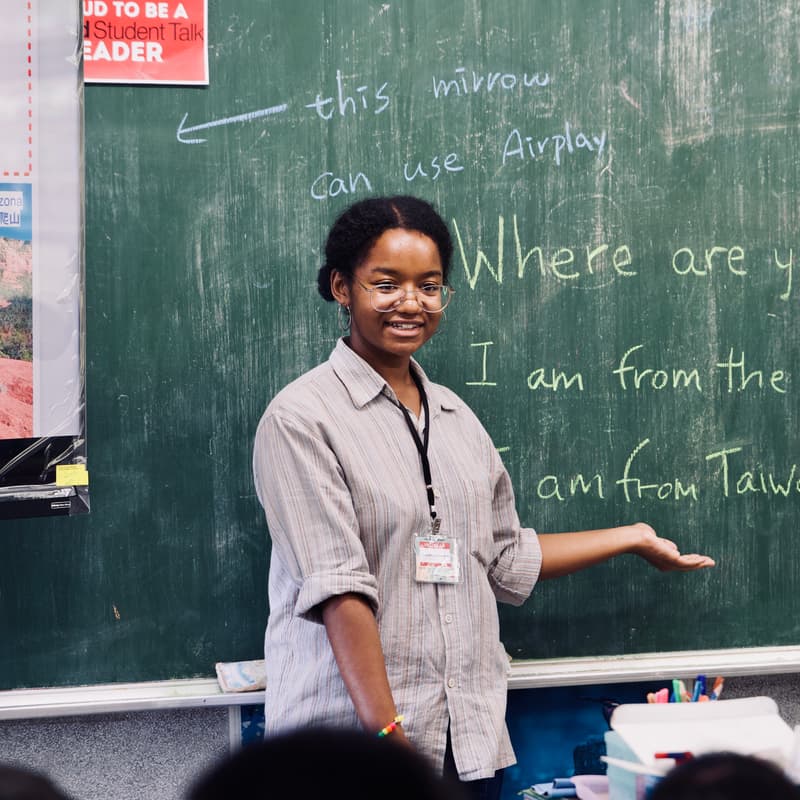 UD TO BE A
d Student Talk
EADER
this mirrow
can use Airplay
Where are y
I am from the
I am from Taiwa
zona